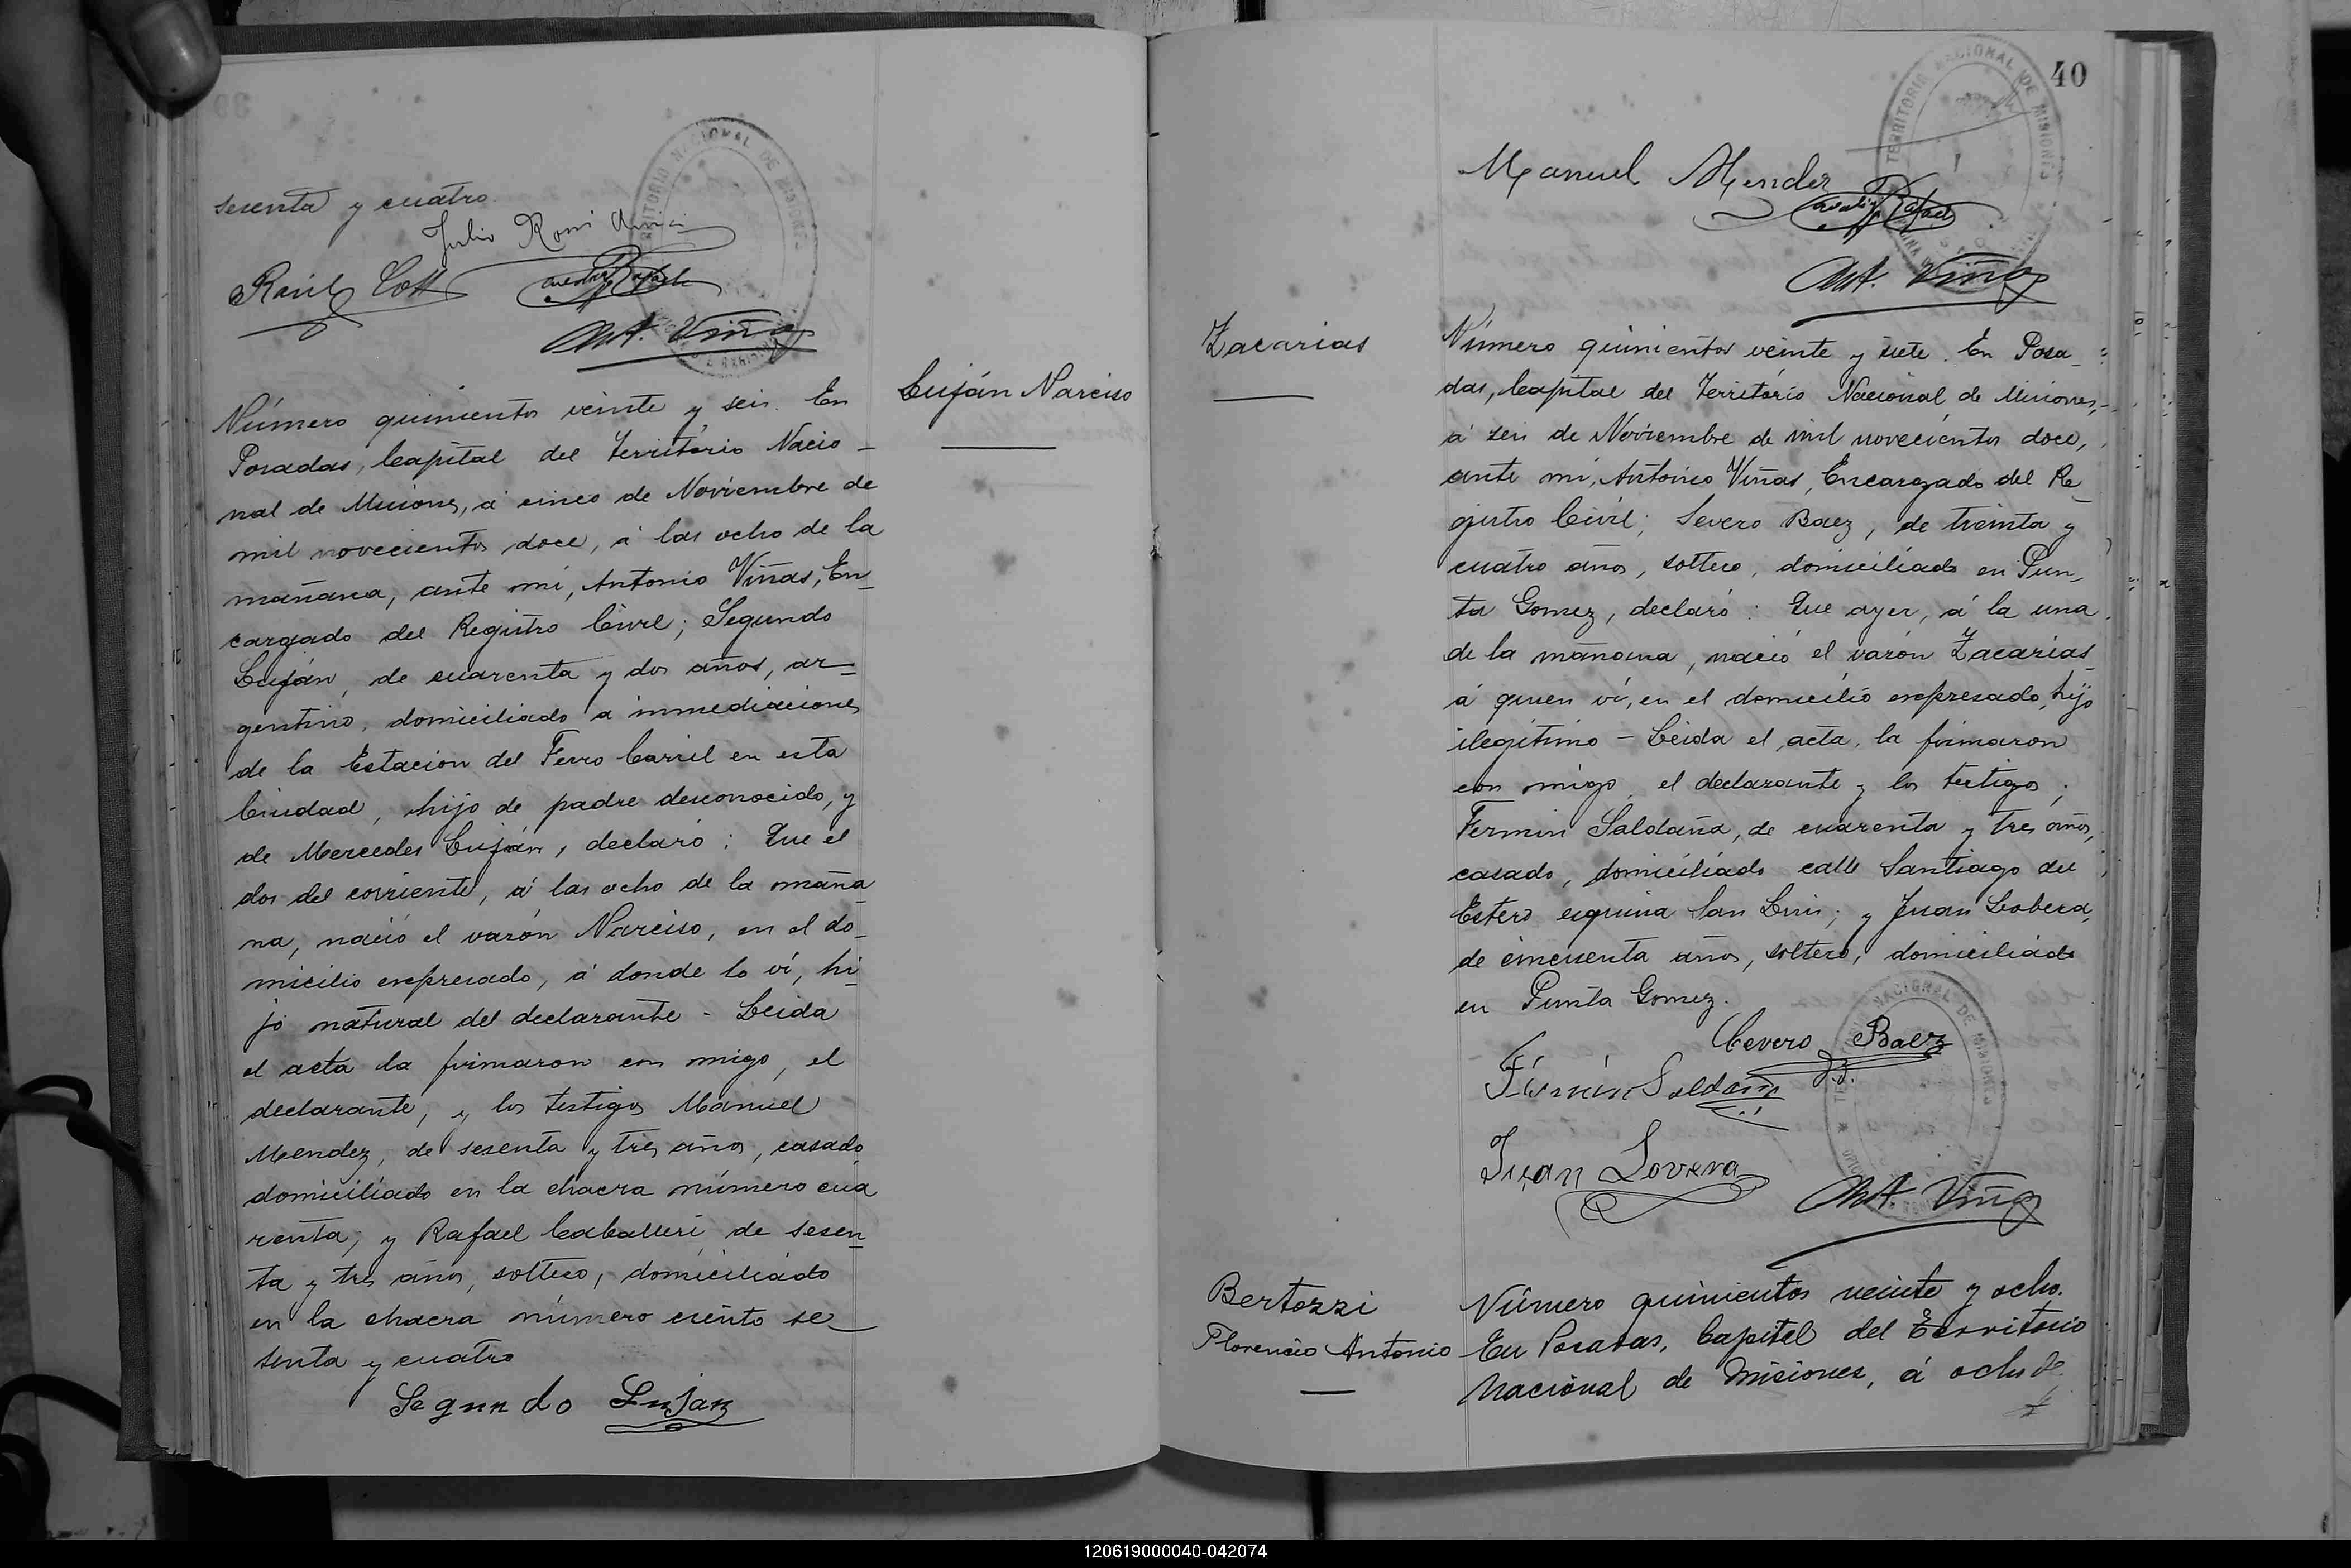 sesenta y cuatro.
Julio Rossi
Raúl Cott
Rafael
Ant. Viñas
Número quinientos veinte y seis. En
Posadas, Capital del Territorio Nacio-
nal de Misiones, á cinco de Noviembre de
mil novecientos doce, á las ocho de la
mañana, ante mí, Antonio Viñas, En-
cargado del Registro Civil; Segundo
Luján, de cuarenta y dos años, ar-
gentino, domiciliado a inmediaciones
de la Estacion del Ferro Carril en esta
Ciudad, hijo de padre desconocido, y
de Mercedes Luján, declaró: Que el
dos del corriente, á las ocho de la maña-
na, nació el varón Narciso, en el do-
micilio expresado, á donde lo ví, hi-
jo natural del declarante - Leida
el acta la firmaron con migo, el
declarante, y los testigos Manuel
Mendez, de sesenta y tres años, casado,
domiciliado en la chacra número cua
renta; y Rafael Caballeri de sesen-
ta y tres años, soltero, domiciliado
en la chacra número ciento se-
senta y cuatro
Segundo Lujan
Luján Narciso
40
TERRITORIO NACIONAL DE MISIONES
Manuel Mendez
Rafael
Ant. Viñas
Zacarias
Número quinientos veinte y siete. En Posa-
das, Capital del Territorio Nacional de Misiones,
á seis de Noviembre de mil novecientos doce,
ante mí, Antonio Viñas, Encargado del Re-
gistro Civil; Severo Baez, de treinta y
cuatro años, soltero, domiciliado en Pun-
ta Gomez, declaró: Que ayer, á la una
de la mañana, nació el varón Zacarias
á quien ví, en el domicilio expresado, hijo
ilegítimo - Leida el acta, la firmaron
con migo, el declarante y los testigos;
Fermin Saldaña, de cuarenta y tres años,
casado, domiciliado calle Santiago del
Estero esquina San Luis; y Juan Lobera,
de cincuenta años, soltero, domiciliado
en Punta Gomez.
Cevero Baez
Fermín Saldaña
Juan Lovera
Ant. Viñas
Bertozzi
Florencio Antonio
Número quinientos veinte y ocho.
En Posadas, Capital del Territorio
Nacional de Misiones, á ocho de
120619000040-042074